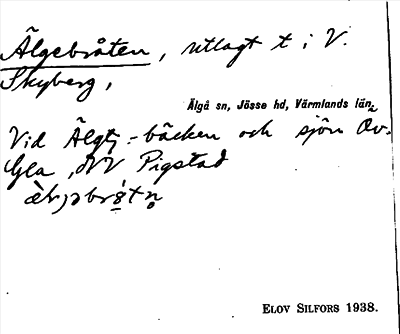 Älgebråten, utlagt t i V.
Skyberg,
Älgå sn, Jösse hd, Värmlands län
Vid Älgtj.-bäcken och sjön Öv.
Gla, NV Pigstad
ELOV SILFORS 1938.